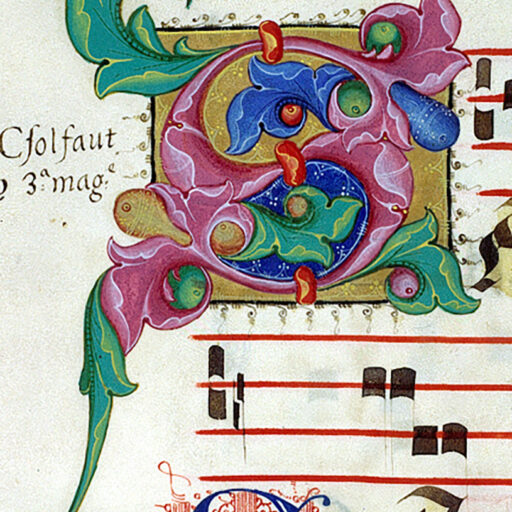 Csolfaut
3.ª mag.ᵉ
S